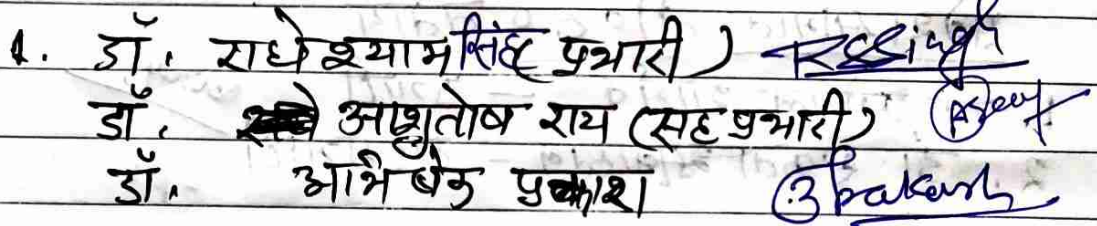 1. डॉ. राधेश्याम सिंह प्रभारी) RSSingh
डॉ. आशुतोष राय (सह प्रभारी)
डॉ. अभिषेक प्रकाश Prakash